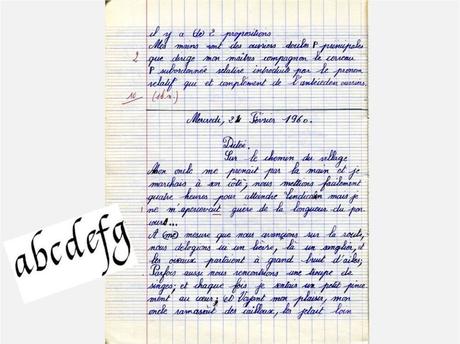 il y a (le) 2 propositions
Mes mains sont des ouvriers dociles P principales
2 que dirige mon maître compagnon le cerveau
P subordonnée relative introduite par le pronom
relatif qui et complément de l'antécédent ouvriers.
10
Mercredi, 24 Février 1960.
Dictée.
Sur le chemin du village
Mon oncle me prenait par la main et je
marchais à son côté; nous mettions facilement
quatre heures pour atteindre mais je
ne m'apercevait guère de la longueur du par
cours...
A (me) mesure que nous avancions sur la route,
nous délogions un lièvre, là un sanglier, et
les oiseaux partaient à grand bruit d'ailes;
Parfois aussi nous rencontrions une troupe de
singes; et chaque fois je sentais un petit pince
ment au cœur; et Voyant mon plaisir, mon
oncle ramassait des cailloux, les jetait loin
abcdefg